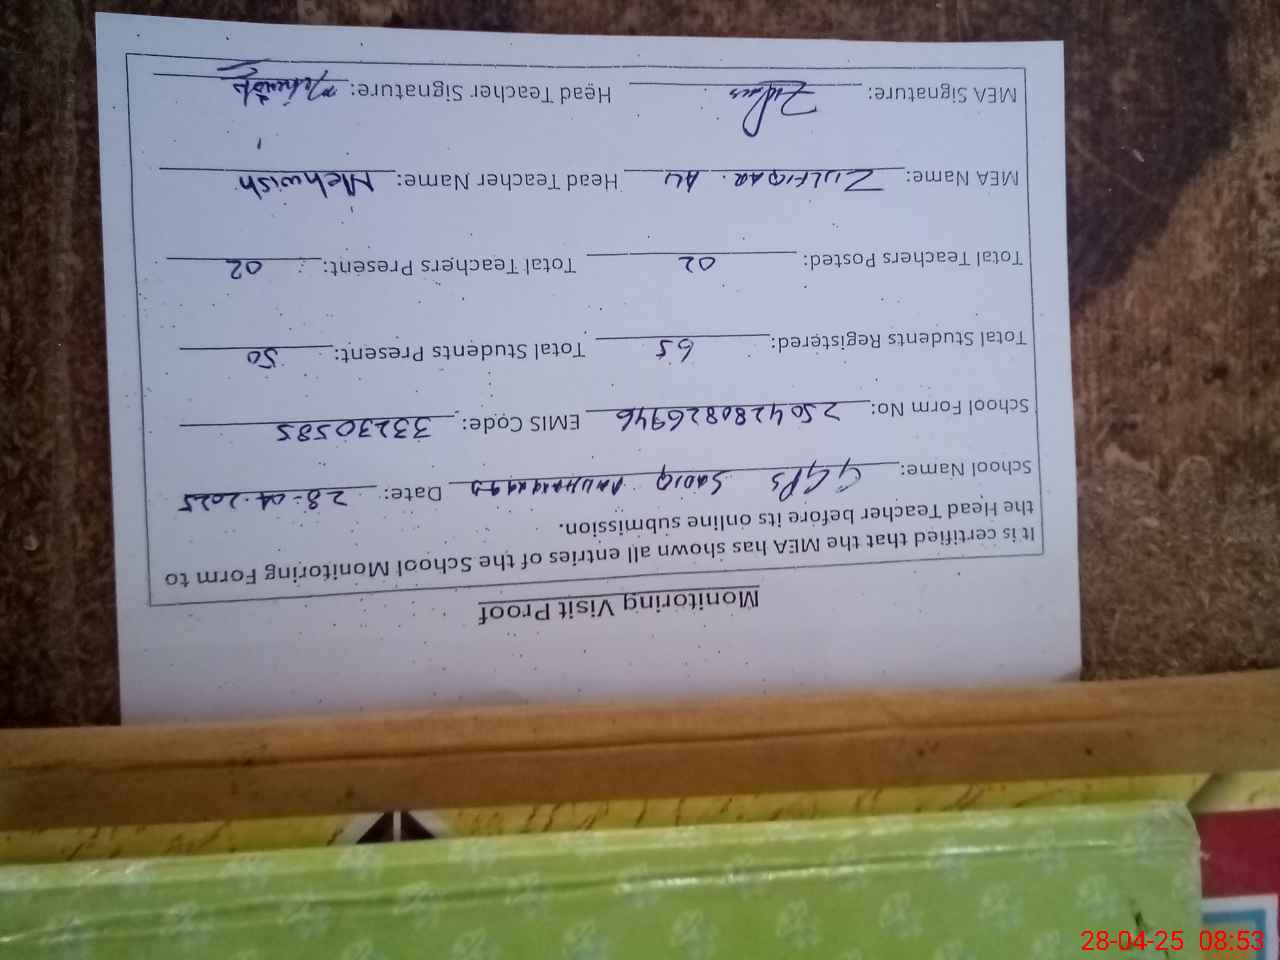 Monitoring Visit Proof
It is certified that the MEA has shown all entries of the School Monitoring Form to
the Head Teacher before its online submission.
School Name: GGPS SADIQ Date: 28-04-2025
School Form No: 2504280826946 EMIS Code: 33230585
Total Students Registered: 65 Total Students Present: 50
Total Teachers Posted: 02 Total Teachers Present: 02
MEA Name: ZULFIQAR. ALI Head Teacher Name: Mehwish
MEA Signature: Head Teacher Signature: Mehwish
28-04-25 08:53